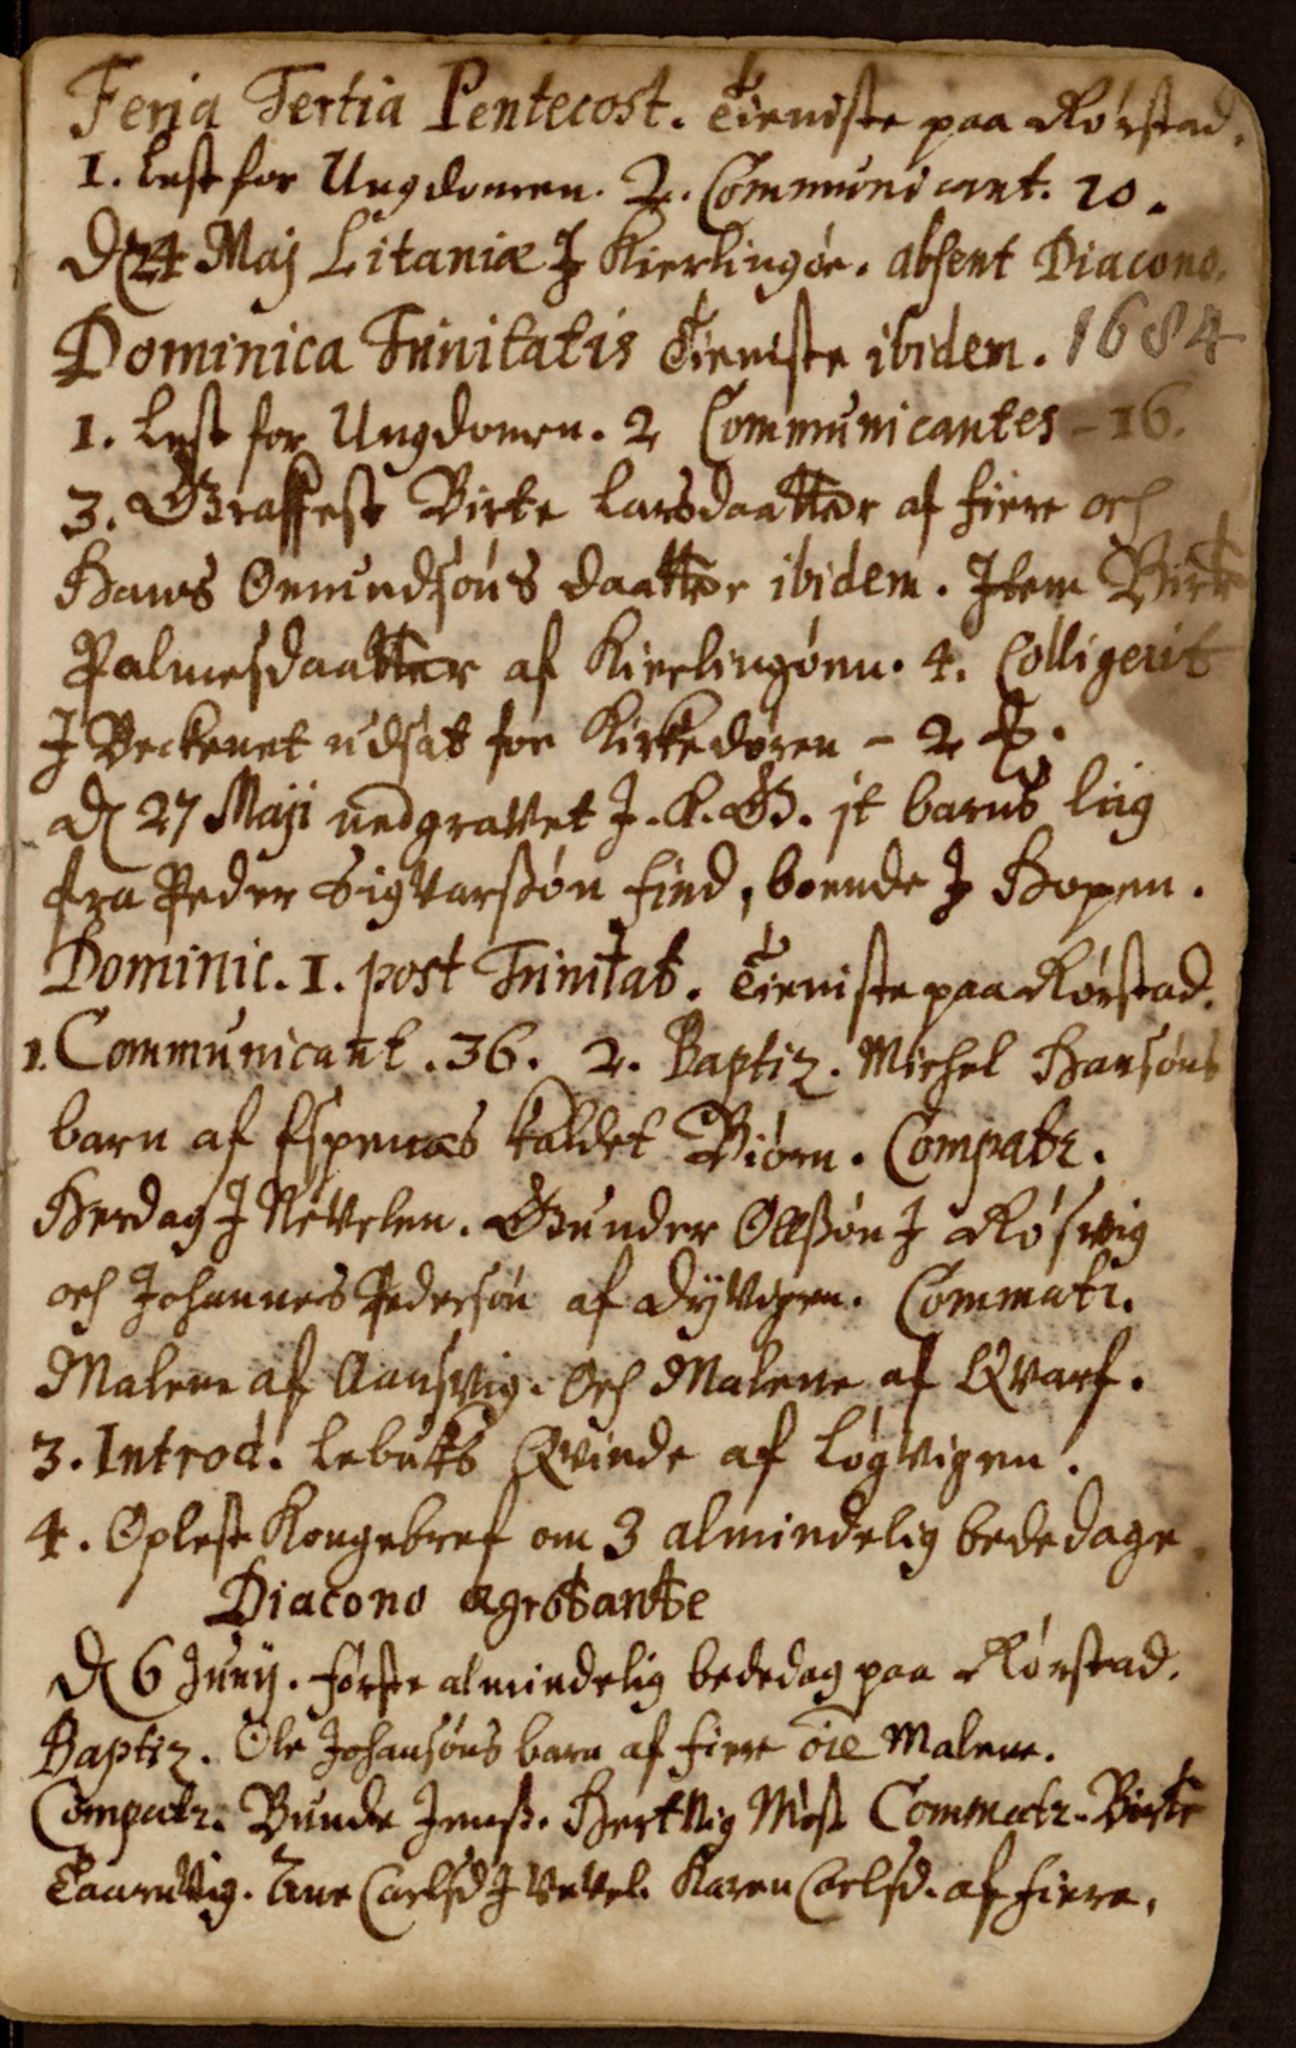 Feria Tertia Pentecost. Tieniste paa Rørstad.
1. Lest for Ungdomen. 2. Communicant. 20.
D 24 Maj Litaniæ J Kierlingøe. absent Diacono.
Dominica Trinitatis Tieniste ibidem. 1684
1. Lest for Ungdomen. 2 Communicantes - 16.
3. Graffest Birte Larsdaatter af Fiere och
Hans Omundsøns daatter ibidem. Item Birte
Palmesdaatter af Kierlingøen. 4. Colligerit
J Beckenet udsat for Kirkedøren - 2
D 27 Maji nedgravet J. K. G. it barns liig
fra Peder Sigvarssøn Find, boende J Hopen.
Dominic. 1. post Trinitat. Tieniste paa Rørstad.
1. Communicant. 36. 2. Baptiz. Michel Hansøns
barn af Espenæs kaldet Biørn. Compatr.
Herdag J Nevelen. Gunder Ollssøn J Røsvig
och Johannes Pedersøn af Dyvigen. Commatr.
Malene af Aansvig. Och Malene af Qvarf.
3. Introd. Lebukts Qvinde af Løgvigen.
4. Oplest Kongebref om 3 almindelig bededage
Diacono ægrotante
D 6 Junij. første almindelig bededag paa Rørstad.
Baptiz. Ole Johansøns barn af Fiere øie Malene.
Compatr. Bunde Jenss. Hertvig Moss Commatr. Birte
Taarnvig. Ane Carlsd J Nevel. Karen Carlsd. af Fiere.